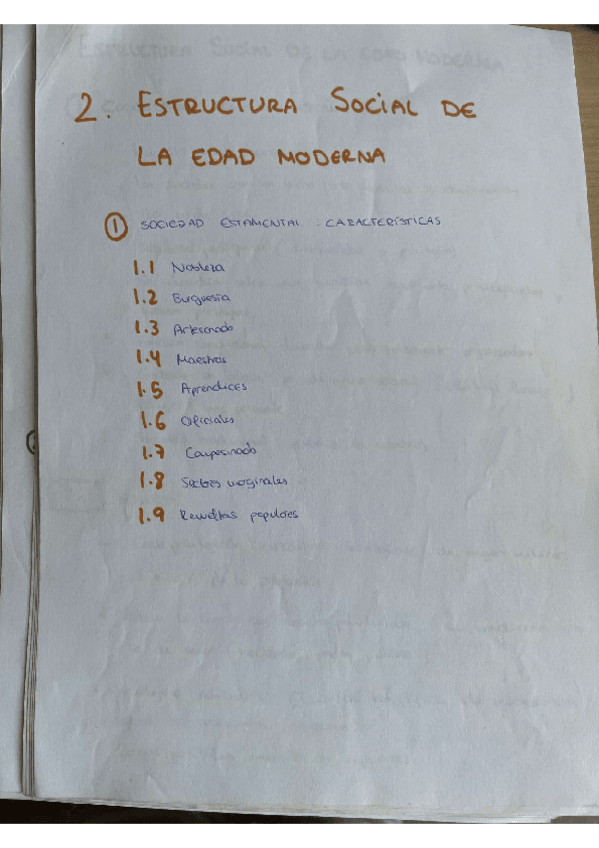 2. ESTRUCTURA SOCIAL DE
LA EDAD MODERNA
1 SOCIEDAD ESTAMENTAL : CARACTERÍSTICAS
1.1 Nobleza
1.2 Burguesía
1.3 Artesanado
1.4 Maestros
1.5 Aprendices
1.6 Oficiales
1.7 Campesinado
1.8 Sectores marginales
1.9 Revueltas populares